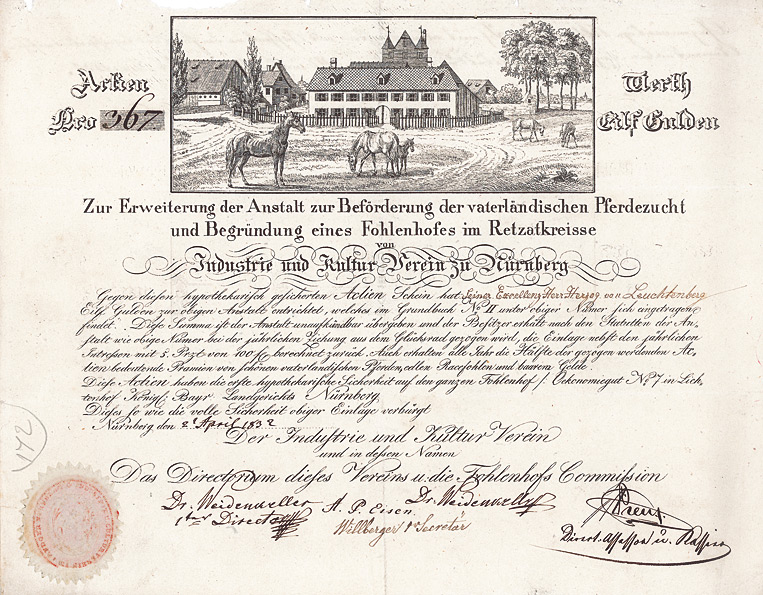 Actien
Nro 367
Werth
Eilf Gulden
Zur Erweiterung der Anstalt zur Beförderung der vaterländischen Pferdezucht
und Begründung eines Fohlenhofes im Retzatkreisse
von
Industrie und Kultur Verein zu Nürnberg
Gegen diesen hypothekarisch gesicherten Actien Schein hat Seiner Excellenz Herr Herzog von Leuchtenberg
Eilf Gulden zur obigen Anstalt entrichtet, welches im Grundbuch No II unter obiger Numer sich eingetragen
findet. Diese Summa ist der Anstalt unaufkündbar übergeben und der Besitzer erhält nach den Statutten der An-
stalt wie obige Numer bei der jährlichen Ziehung aus dem Glücksrad gezogen wird, die Einlage nebst den jährlichen
Intressen mit 5. Przt von 100 berechnet zurück. Auch erhalten alle Jahr die Hälfte der gezogen werdenden Ac-
tien bedeutende Præmien von schönen vaterländischen Pferden, edlen Racefohlen und baarem Gelde.
Diese Actien haben die erste hypothekarische Sicherheit auf den ganzen Fohlenhof /: Oekonomiegut No 7 in Lich-
tenhof Königl: Bayr Landgerichts Nürnberg.
Dieses so wie die volle Sicherheit obiger Einlage verbürgt
Nürnberg den 2t April 1832
Der Industrie und Kultur Verein
und in dessen Namen
Das Directorium dieses Vereins u. die Fohlenhofs Commission
Dr. Weidenkeller A. P. Eisen Dr. Weidenkeller
1ter Director Willberger Secretär
Direct. Assessor u. Kassier
172